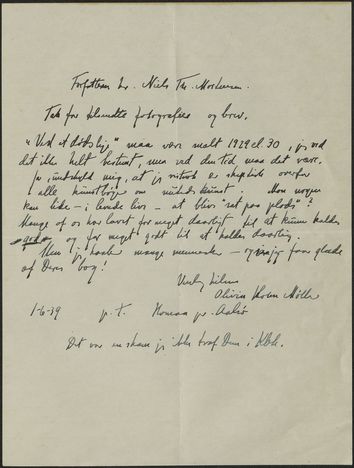 Forfatteren Hr. Niels Th. Mortensen.
Tak for tilsendte fotografier og brev.
"Ved et dødsleje" maa være malt 1929 el. 30, jeg ved
det ikke helt bestemt, men ved den tid maa det være.
Jeg undskyld mig, at jeg er skeptisk overfor
alle kunstbøger om nutidskunst. Mon nogen
kan lide – i levende live – at blive "sat paa plads"?
Mange af os har lavet for meget daarligt til at kunne kaldes
gode, og for meget godt til at kaldes daarlig.
Men jeg haaber mange mennesker – og jeg faar glæde
af Deres bog!
Venlig hilsen
Olivia Holm Møller
1-6-39 p. t. Homaa pr. Aalsø
Det var en skam jeg ikke traf Dem i Kbh.